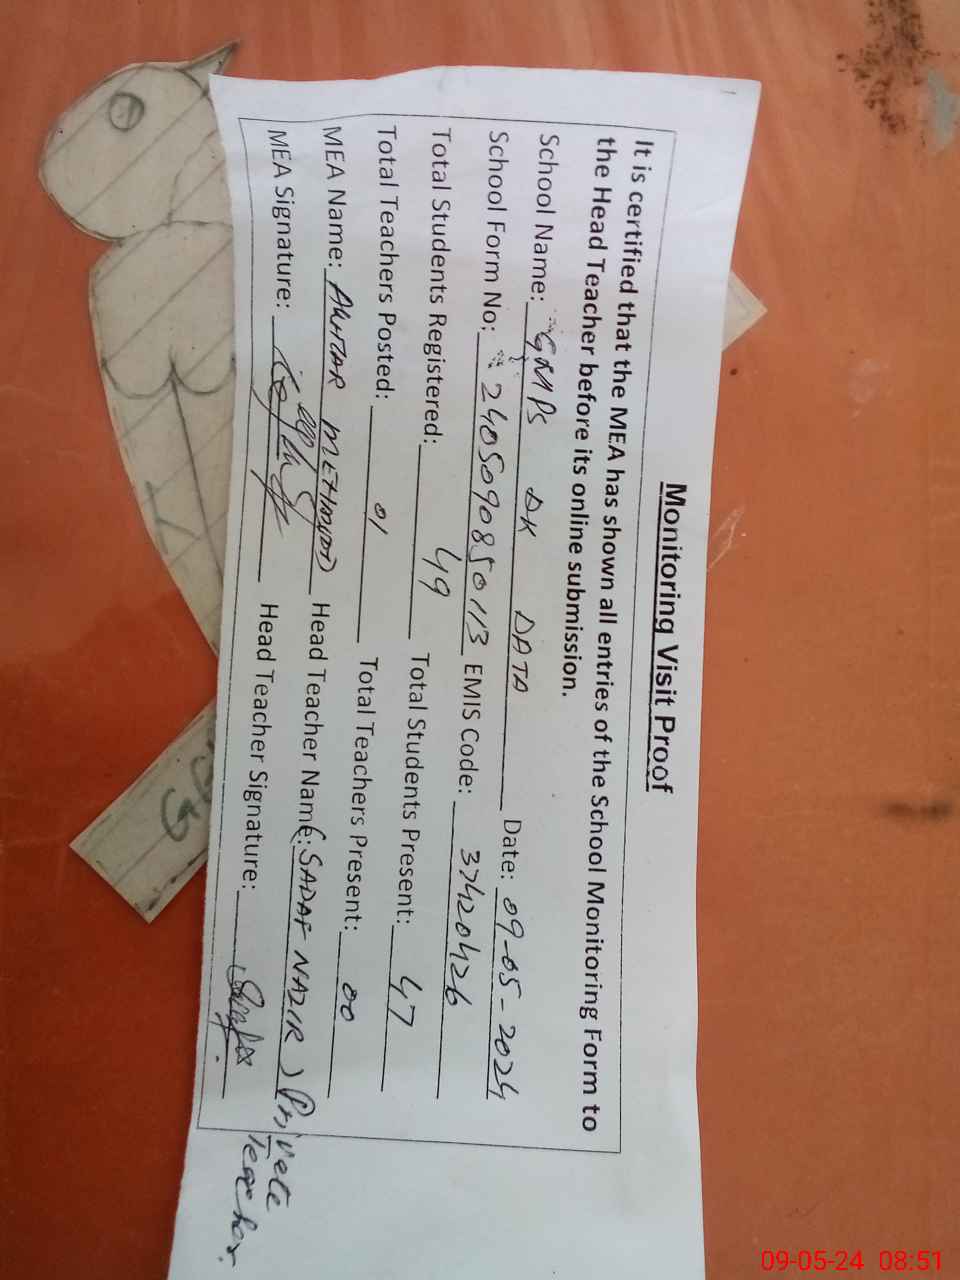 Monitoring Visit Proof
It is certified that the MEA has shown all entries of the School Monitoring Form to
the Head Teacher before its online submission.
School Name: GMPS DK DATA Date: 09-05-2024
School Form No: 2405090850113 EMIS Code: 37420426
Total Students Registered: 49 Total Students Present: 47
Total Teachers Posted: 01 Total Teachers Present: 00
MEA Name: AKHTAR MEHMOOD Head Teacher Name: (SADAF NAZIR) Private
Teacher.
MEA Signature: Head Teacher Signature:
09-05-24 08:51